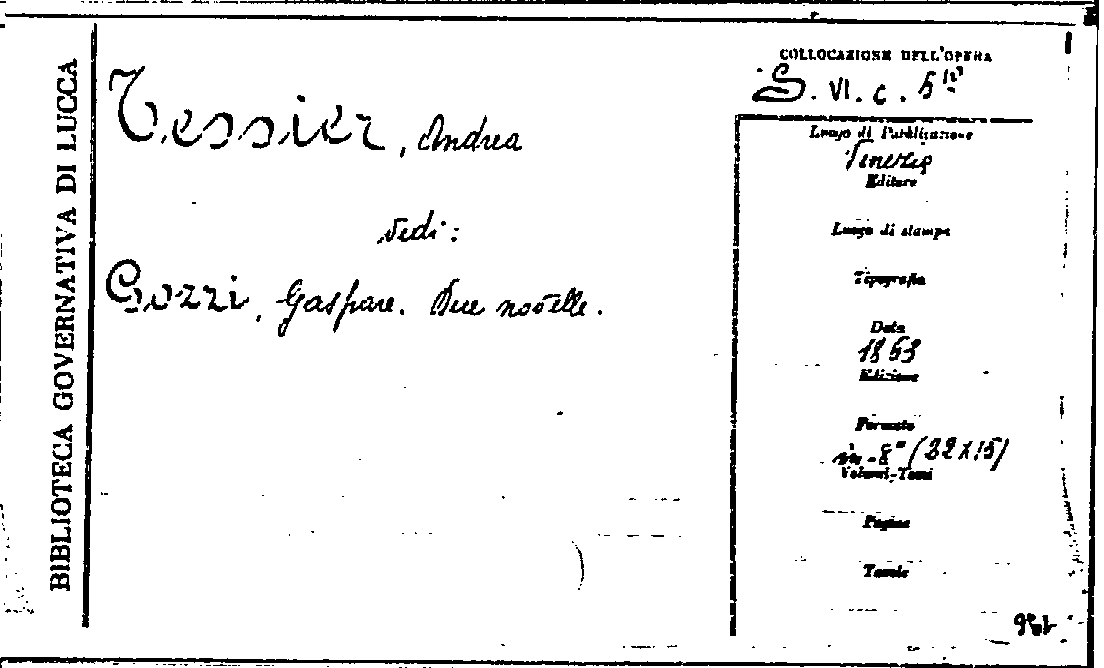 BIBLIOTECA GOVERNATIVA DI LUCCA
Tessier, Andrea
vedi:
Gozzi, Gaspare. Due novelle.
COLLOCAZIONE DELL'OPERA
S. VI. c. 5
Luogo di Pubblicazione
Venezia
Editore
Luogo di stampa
Tipografia
Data
1863
Edizione
Formato
in-8° (22X15)
Volumi-Tomi
Pagine
Tavole